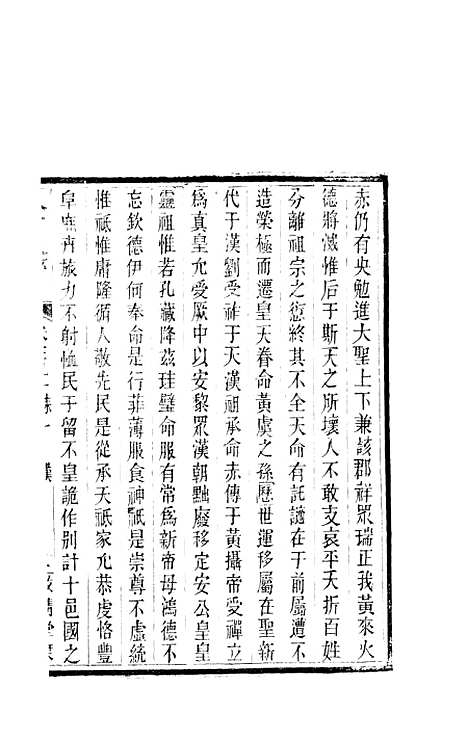 赤仍有央勉進大聖上下兼該郡祥眾瑞正我黃來火
德將滅惟后于斯天之所壞人不敢支哀平夭折百姓
分離祖宗之愆終其不全天命有託謫在于前屬遭不
造榮極而遷皇天眷命黃虞之孫歷世運移屬在聖新
代于漢劉受祚于天漢祖承命赤傳于黃攝帝受禪立
爲真皇允受厥中以安黎眾漢朝黜廢移定安公皇皇
靈祖惟若孔臧降茲珪璧命服有常爲新帝母鴻德不
忘欽德伊何奉命是行菲薄服食神祇是崇尊不虛統
惟祇惟庸隆循人敬先民是從承天祇家允恭虔恪豐
阜庶卉旅力不射恤民于留不皇詭作別計十邑國之
漢